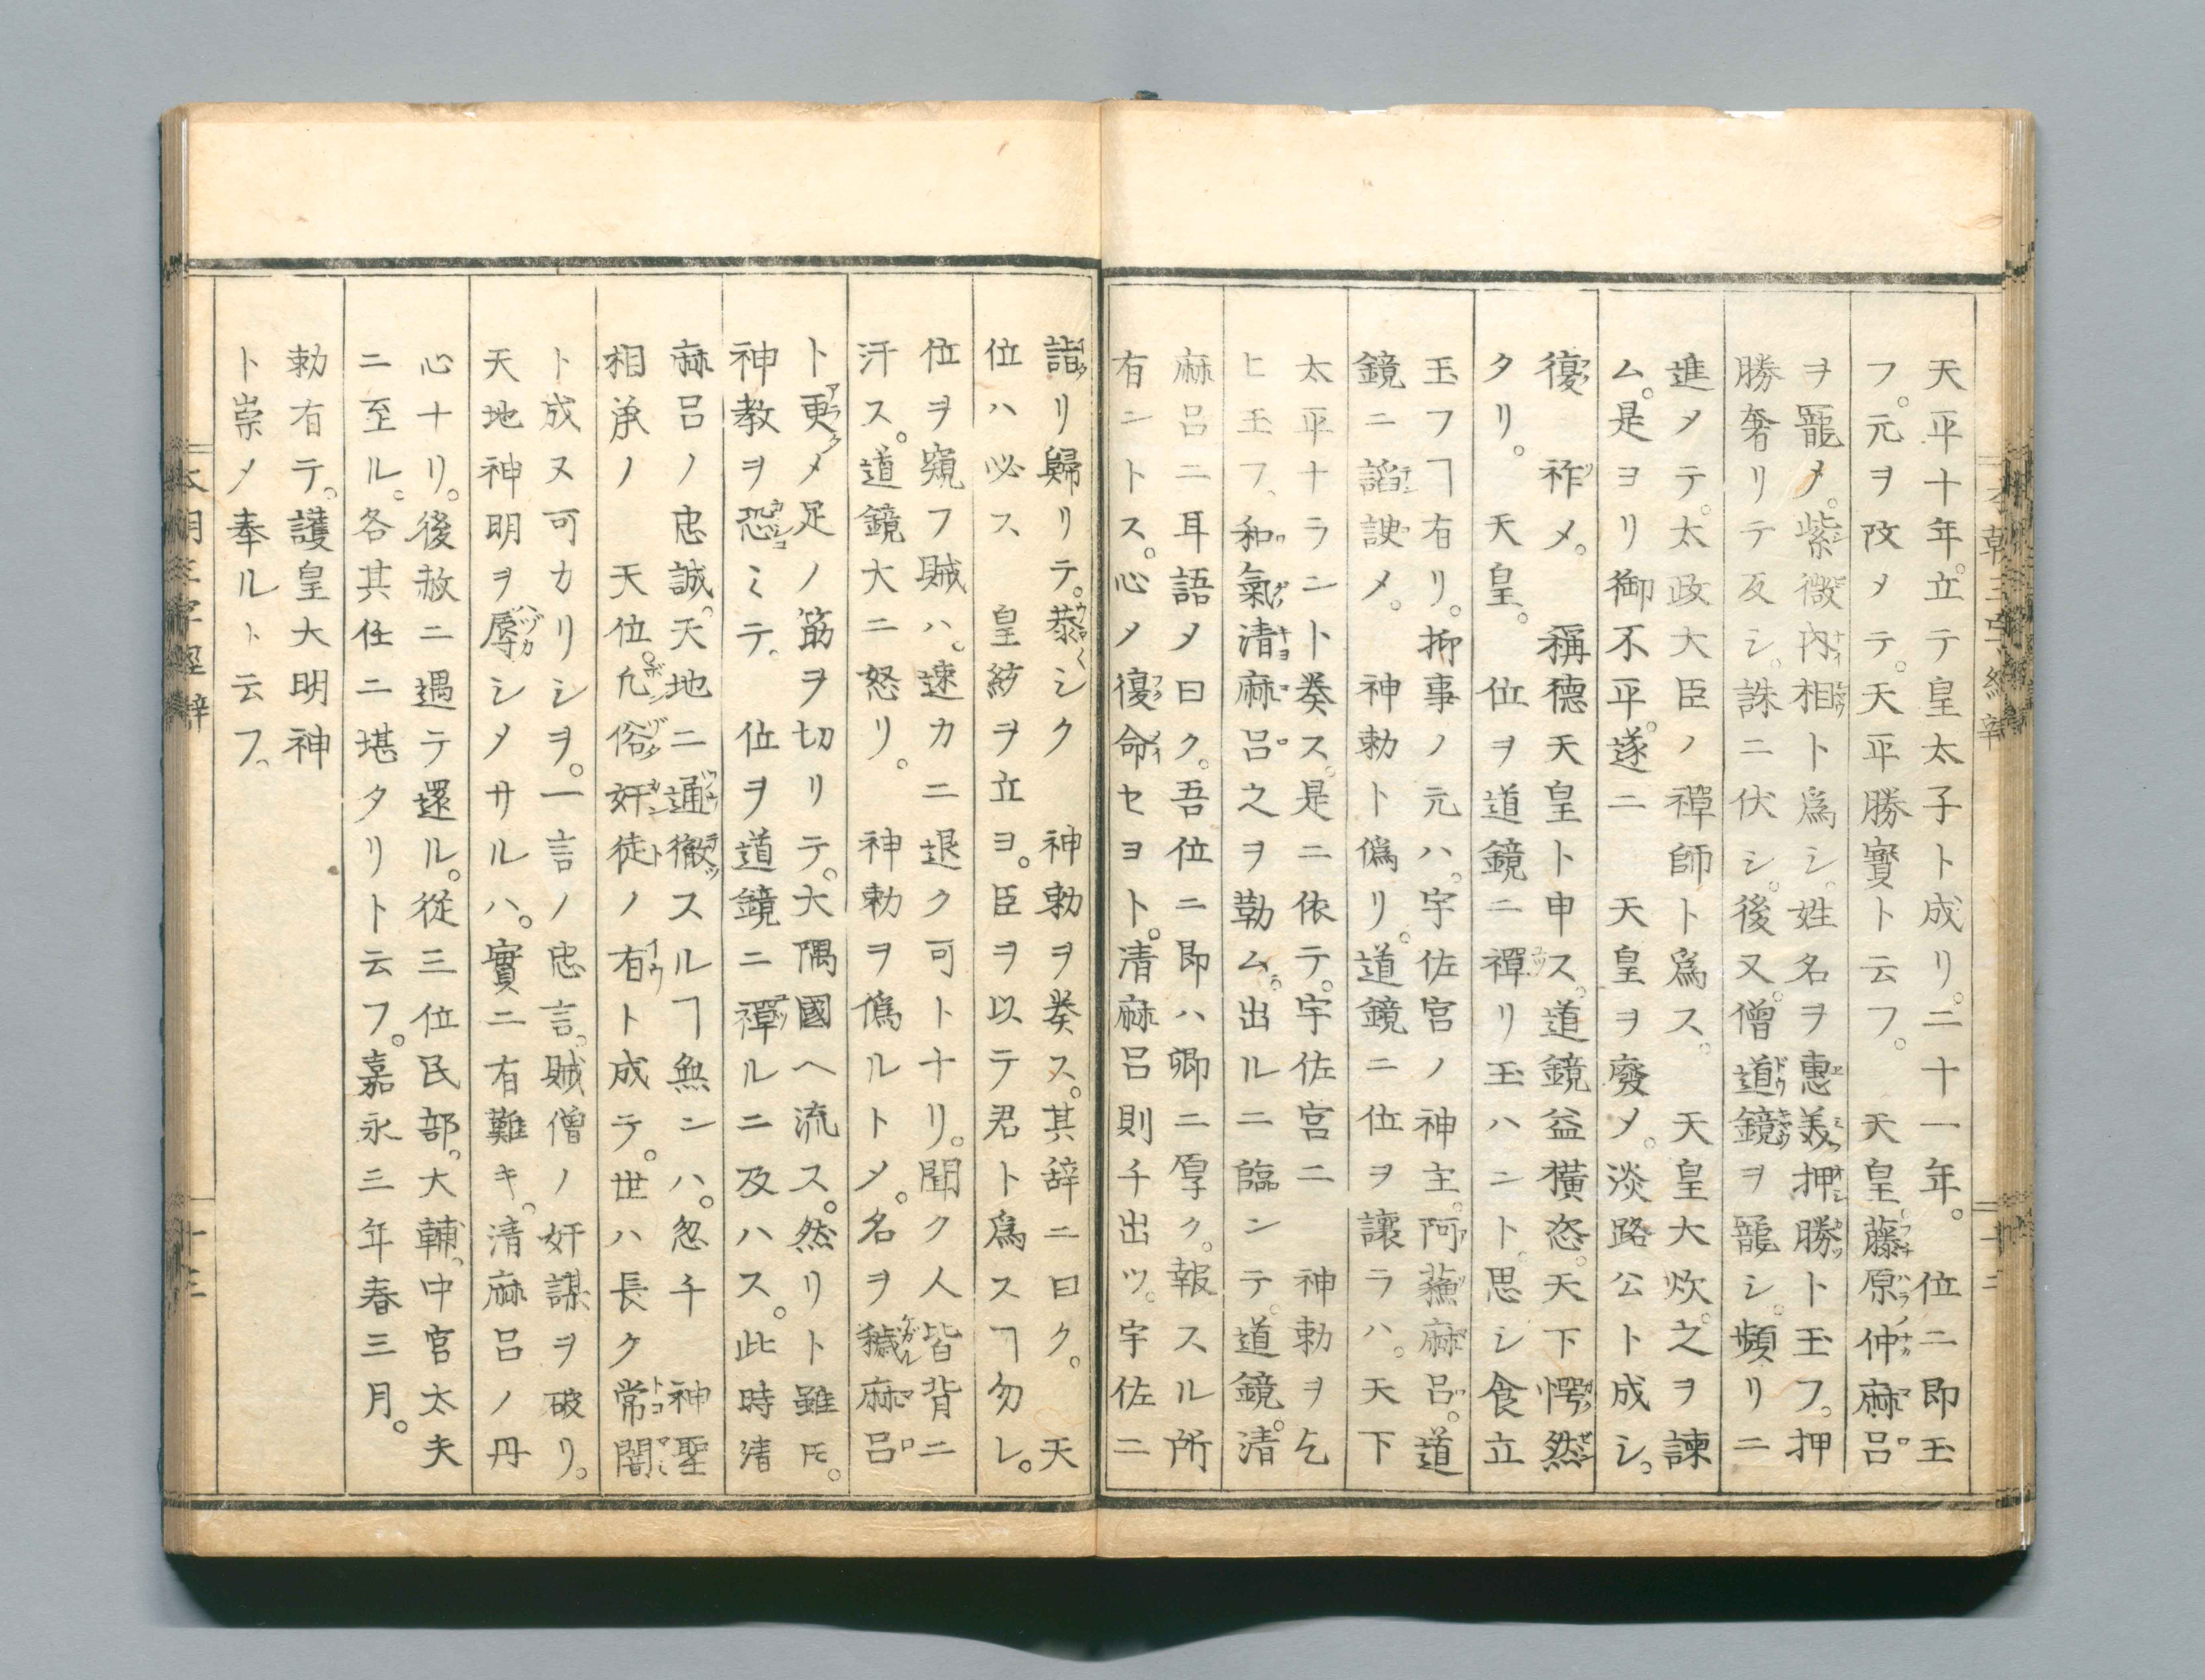 天平十年。立テ皇太子ト成リ。二十一年。位ニ即玉
フ。元ヲ改メテ。天平勝寳ト云フ。天皇。藤原仲麻呂
ヲ寵メ。紫微内相ト爲シ。姓名ヲ惠美押勝ト玉フ。押
勝奢リテ反シ。誅ニ伏シ。後又。僧道鏡ヲ寵シ。頻リニ
進メテ。太政大臣ノ禪師ト爲ス。天皇大炊。之ヲ諫
ム。是ヨリ御不平。遂ニ天皇ヲ廢メ。淡路公ト成シ。
復祚メ。稱德天皇ト申ス。道鏡益橫恣。天下愕然
タリ。天皇。位ヲ道鏡ニ禪リ玉ハント。思シ食立
玉フヿ有リ。抑事ノ元ハ。宇佐宮ノ神主。阿蘓麻呂。道
鏡ニ諂諛メ。神勅ト僞リ。道鏡ニ位ヲ讓ラハ。天下
太平ナラント奏ス。是ニ依テ。宇佐宮ニ神勅ヲ乞
ヒ玉フ。和氣清麻呂之ヲ勒ム。出ルニ臨ンテ。道鏡。清
麻呂ニ耳語メ曰ク。吾位ニ即ハ卿ニ厚ク。報スル所
有ントス。心メ復命セヨト。清麻呂則チ出ツ。宇佐ニ
詣リ歸リテ。恭シク神勅ヲ奏ス。其辞ニ曰ク。天
位ハ必ス皇紡ヲ立ヨ。臣ヲ以テ君ト爲スヿ勿レ。
位ヲ窺フ賊ハ。速カニ退ク可トナリ。聞ク人皆背ニ
汗ス。道鏡大ニ怒リ。神勅ヲ僞ルトメ。名ヲ穢麻呂
ト更メ足ノ筋ヲ切リテ。大隅國ヘ流ス。然リト雖𪜈。
神教ヲ恐ミテ。位ヲ道鏡ニ禪ルニ及ハス。此時清
麻呂ノ忠誠。天地ニ通徹スルヿ無ンハ。忽チ神聖
相承ノ天位。凢俗奸徒ノ有ト成テ。世ハ長ク常闇
ト成ヌ可カリシヲ。一言ノ忠言。賊僧ノ奸謀ヲ破リ。
天地神明ヲ辱シメサルハ。實ニ有難キ。清麻呂ノ丹
心ナリ。後赦ニ遇テ還ル。從三位民部。大輔。中宮太夫
ニ至ル。各其任ニ堪タリト云フ。嘉永三年春三月。
勅有テ。護皇大明神
ト崇メ奉ルト云フ。